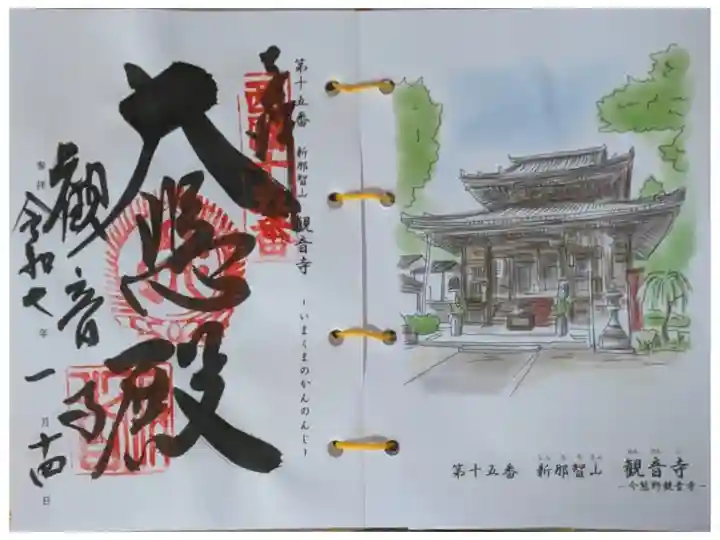 奉拝
大悲殿
観音寺
令和七年一月十四日
第十五番 新那智山 観音寺
-いまくまのかんのんじ-
第十五番 新那智山 観音寺
-今熊野観音寺-